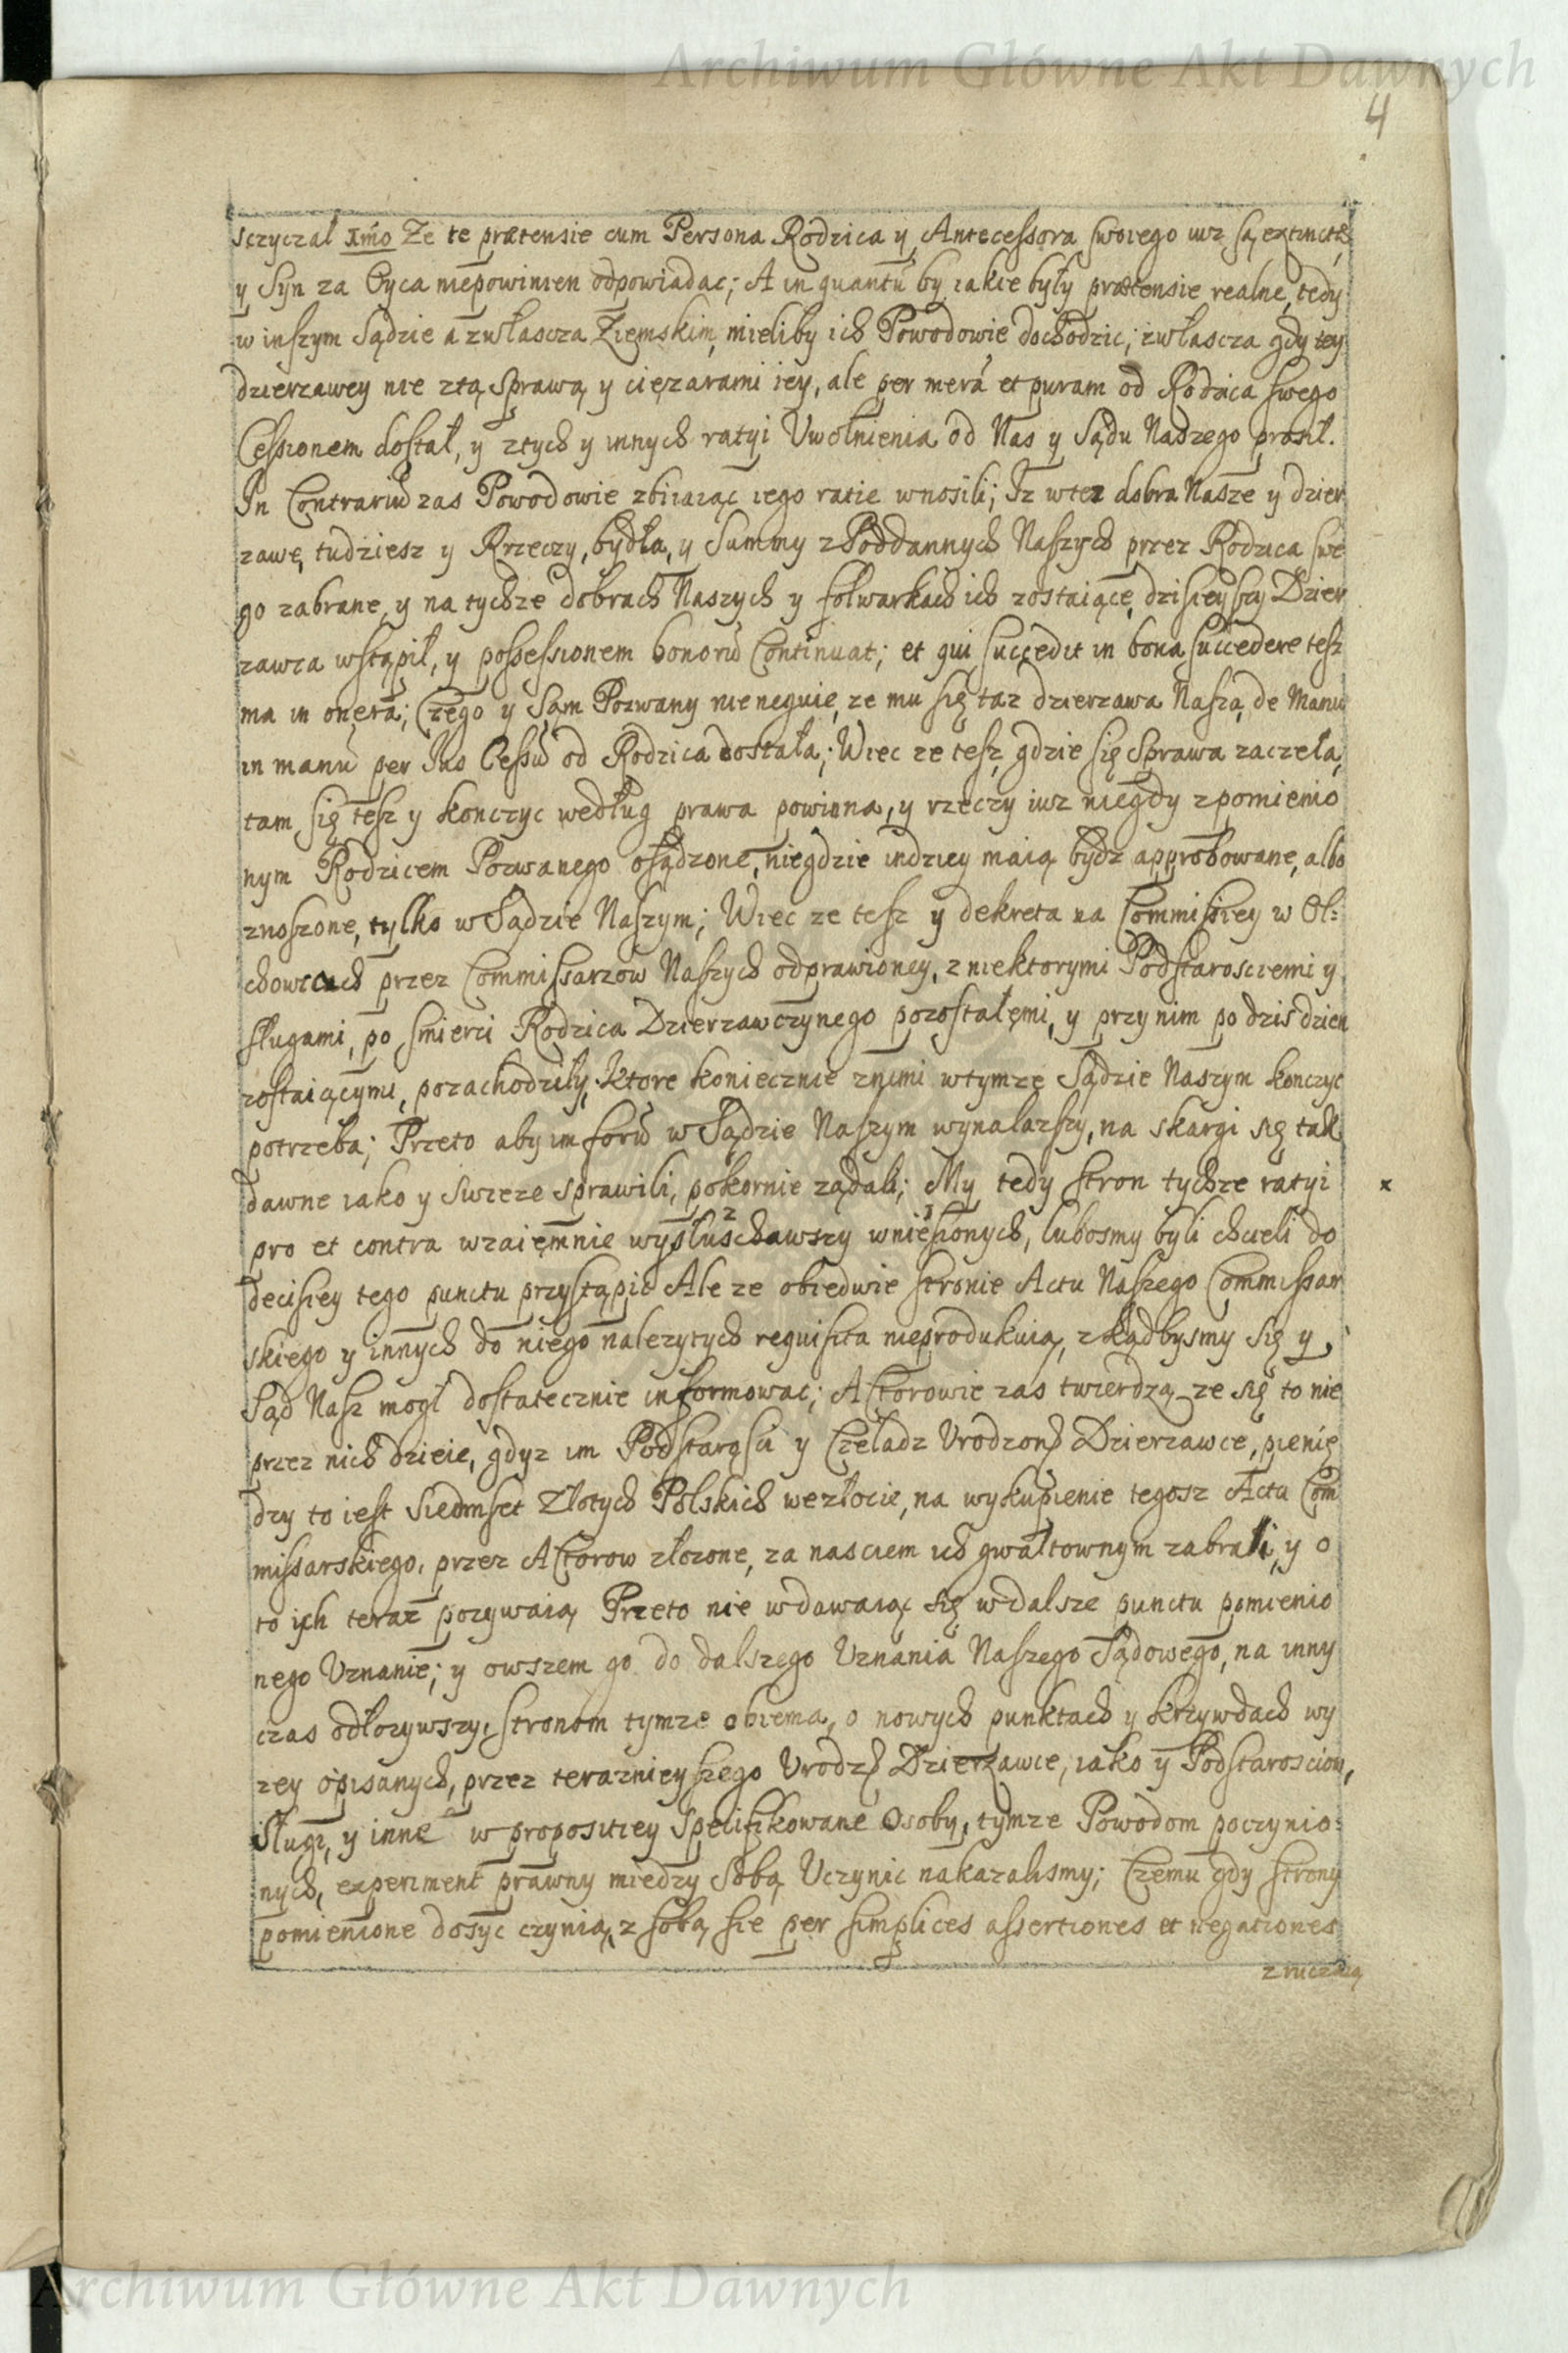 Archiwum Główne Akt Dawnych
4
sczyczał 1mo Ze te prætensie cum Persona Rodzica y Antecessora swoiego iuz są extinctæ
y Syn za Oyca niepowinien odpowiadac; A in quantũ by iakie były prætensie realne, tedy
w inszym Sądzie a zwłascza Ziemskim, mieliby ich Powodowie dochodzic; zwłascza gdy tey
dzierzawey nie ztą Sprawą y cięzarami iey, ale per merã et puram od Rodzica swego
Cessionem dostał, y ztych y innych ratyi Uwolnienia od Nas y Sądu Naszego prosił.
In Contrariũ zas Powodowie zbiiaiąc iego ratie wnosili; Iz wtez dobra Nasze y dzier
zawę, tudziesz y Rzeczy, bydła, y Summy z Poddannych Naszych przez Rodzica swe
go zabrane, y na tychze dobrach Naszych y folwarkach ich zostaiące, dzisieyszy Dzier
zawca wstąpił, y possessionem bonorũ Continuat; et qui succedit in bona succedere tesz
ma in onera; Czego y Sam Pozwany nieneguie, ze mu się taz dzierzawa Nasza, de Manu
in manũ per Ius Cessũ od Rodzica dostała; Wiec ze tesz, gdzie się Sprawa zaczeła,
tam się tesz y konczyc według prawa powinna, y rzeczy iuz niegdy zpomienio
nym Rodzicem Pozwanego osądzone, niegdzie indziey maią bydz approbowane, albo
znoszone, tylko w Sądzie Naszym; Wiec ze tesz y dekreta na Commisiey w Ol:
chowcach przez Commissarzow Naszych odprawioney, z niektorymi Podstarosciemi y
sługami, po smierci Rodzica Dzierzawczynego pozostałęmi, y przy nim po dzis dzien
zostaiącymi, pozachodziły, ktore koniecznie znimi wtymze Sądzie Naszym konczyc
potrzeba; Przeto aby im forũ w Sądzie Naszym wynalazszy, na skargi się tak
dawne iako y swieze sprawili, pokornie ządali; My tedy stron tychze ratyi x
pro et contra wzaięmnie wysłuschawszy 2 wniesionych 1, lubosmy byli chcieli do
decisiey tego punctu przystąpic Ale ze obiedwie stronie Actu Naszego Commissar
skiego y innych do niego nalezytych requisita nieprodukuią, zkądbysmy się y
Sąd Nasz mogł dostatecznie informowac; Actorowie zas twierdzą ze się to nie
przez nich dzieie, gdyz im Podstarosci y Czeladz Urodzonego Dzierzawce, pienię
dzy to iest Siedmset Złotych Polskich wezłocie, na wykupienie tegosz Actu Com
missarskiego, przez Actorow złozone, za nasciem ich gwałtownym zabrali, y o
to ich teraz pozywaią Przeto nie wdawaiąc się wdalsze punctu pomienio
nego Uznanie; y owszem go do dalszego Uznania Naszego Sądowego, na inny
czas odłozywszy, stronom tymze obiema, o nowych punktach y krzywdach wy
zey opisanych, przez terazniey szego Urodz Dzierzawce, iako y Podstarosciow,
Sługi, y inne w propositiey Specifikowane Osoby, tymze Powodom poczynio:
nych, experiment prawny miedzy Sobą Uczynic nakazalismy; Czemu gdy strony
pomienione dosyc czynią, z sobą sie per simplices assertiones et negationes
znieczaią
Archiwum Główne Akt Dawnych